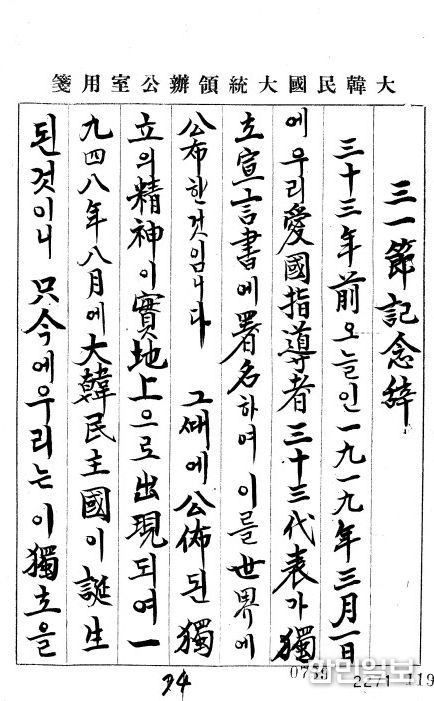 大韓民國大統領辦公室用箋
三一節記念辭
三十三年前오늘인一九一九年三月一日
에우리愛國指導者三十三代表가獨
立宣言書에署名하여이를世界에
公布한것입니다 그때에公佈된獨
立의精神이實地上으로出現되여一
九四八年八月에大韓民主國이誕生
된것이니 只今에우리는이獨立을
94
2271 119